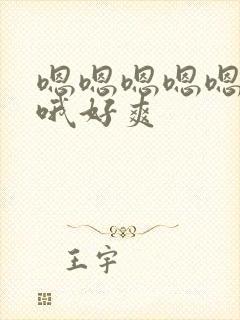 嗯嗯嗯嗯嗯
哦好爽
王宇